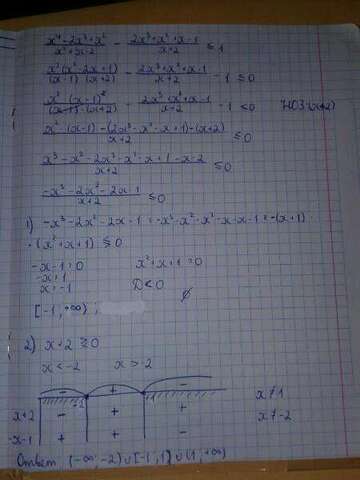 x⁴-2x³+x² / x²+x-2 - 2x³+x²+x-1 / x+2 ≤ 1
x²(x²-2x+1) / (x-1)(x+2) - 2x³+x²+x-1 / x+2 - 1 ≤ 0
x²(x-1)² / (x-1)(x+2) - 2x³+x²+x-1 / x+2 - 1 ≤ 0 НОЗ:(x+2)
x²(x-1)-(2x³-x²-x+1)-(x+2) / x+2 ≤ 0
x³-x²-2x³-x²-x+1-x-2 / x+2 ≤ 0
-x³-2x²-2x-1 / x+2 ≤ 0
1) -x³-2x²-2x-1 = -x³-x²-x²-x-x-1 = -(x+1)·
·(x²+x+1) ≤ 0
-x-1=0 x²+x+1=0
-x=1 D<0
x=-1 ∅
[-1,+∞)
2) x+2 ≥ 0
x<-2 x>-2
- + -
-2
x+2 - + + x≠1
-x-1 + + x≠-2
Ответ (-∞;-2)∪[-1,1)∪(1,+∞)